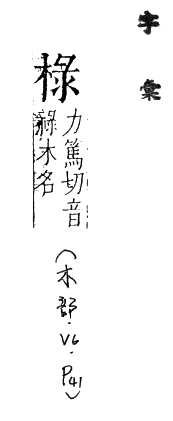 字彙
椂
力篤切音
祿木名
(木部·V6·P41)